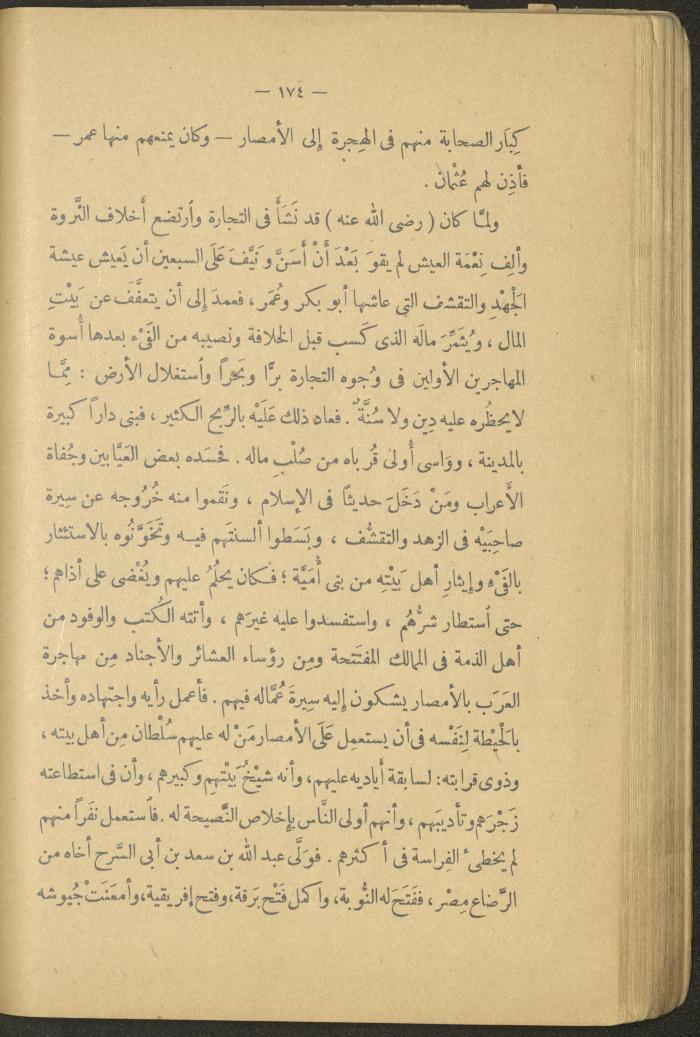 — ١٧٤ —
كِبَار الصحابة منهم فى الهِجرة إلى الأمصار — وكان يمنعهم منها عمر —
فأذِن لهم عُثْمان .
ولمَّا كان ( رضى الله عنه ) قد نَشَأَ فى التجارة وٱرتضع أَخلاف الثَّروة
وألِف نِعْمَة العيش لم يقوَ بَعْدَ أَنْ أَسَنَّ ونَيَّفَ عَلَى السبعين أن يَعيش عيشة
الجَهْدِ والتقشف التى عاشها أبو بكر وعُمَر ، فعمدَ إلى أن يتعفَّفَ عن بَيْتِ
المال ، ويُثَمِّرَ مالَه الذى كَسب قبل الخلافة ونصيبه من الفَيْء بعدها أُسوة
المهاجرين الأولين فى وُجوه التجارة برًّا وبَحراً وٱستغلال الأرض : مِمَّا
لا يحظُره عليه دِين ولا سُنَّةٌ . فعاد ذلك عَلَيْه بالرِّبح الكثير ، فبنى داراً كبيرة
بالمدينة ، ووَاسى أُولى قُرباه من صُلْبِ ماله . فحَسَده بعض العَيَّابين وجُفاة
الأَعراب ومَنْ دَخَلَ حديثاً فى الإسلام ، ونَقموا منه خُرُوجه عن سِيرة
صاحِبَيْه فى الزهد والتقشُّف ، وبَسَطوا ألسنتَهم فيه وتَخَوَّنُوه بالاستئثار
بالفَىْءِ وإيثارِ أهل بَيْتِه من بنى أُمَيَّة ؛ فكان يحلُمُ عليهم ويُغْضى على أذاهم ؛
حتى ٱستطار شرُّهُم ، واستفسدوا عليه غيرَهم ، وأتته الكُتب والوفود من
أهل الذمة فى الممالك المفتَتحة ومِن رؤساء العشائر والأجناد مِن مهاجرة
العَرَب بالأمصار يشكون إليه سِيرَةَ عُمَّاله فيهم . فأعمل رأيه واجتهاده وأخذ
بالحَيْطة لِنَفْسه فى أن يستعمل عَلَى الأمصار مَنْ له عليهم سُلْطان مِن أهل بيته ،
وذوى قرابته : لسابقة أياديه عليهم ، وأنه شيْخُ بَيْتهم وكبيرهم ، وأن فى استطاعته
زَجْرَهم وتأديبَهم ، وأنهم أولى النَّاس بإخلاص النَّصيحة له . فٱستعمل نَفَراً منهم
لم يخطىء الفِراسة فى أكثرهم . فوَلَّى عبد الله بن سعد بن أبى السَّرح أخاه من
الرَّضاع مِصْر ، ففَتَحَ له النُّوبة ، واكمل فَتْح بَرقة ، وفتح إفريقية ، وأمعَنَتْ جُيوشه